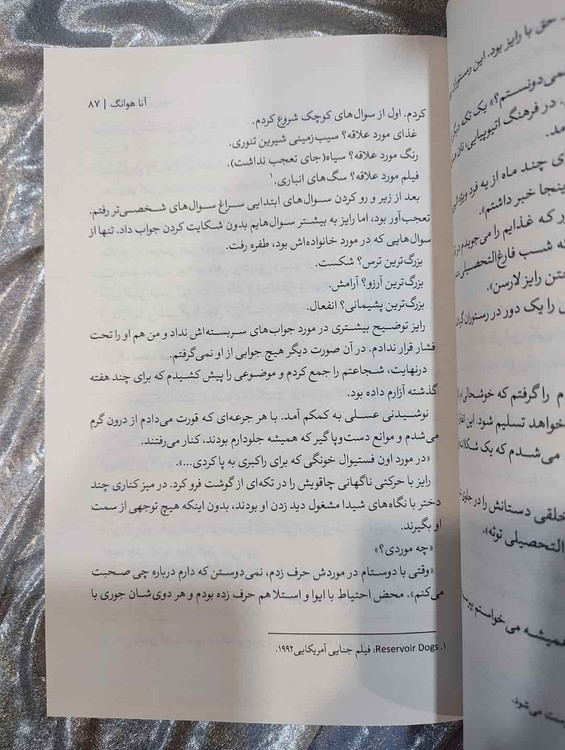 آنا هوانگ | ۸۷
کردم. اول از سوال‌های کوچک شروع کردم.
غذای مورد علاقه؟ سیب‌زمینی شیرین تنوری.
رنگ مورد علاقه؟ سیاه(جای تعجب نداشت).
فیلم مورد علاقه؟ سگ‌های انباری.۱
بعد از زیر و رو کردن سوال‌های ابتدایی سراغ سوال‌های شخصی‌تر رفتم.
تعجب‌آور بود، اما رایز به بیشتر سوال‌هایم بدون شکایت کردن جواب داد. تنها از
سوال‌هایی که در مورد خانواده‌اش بود، طفره رفت.
بزرگ‌ترین ترس؟ شکست.
بزرگ‌ترین آرزو؟ آرامش.
بزرگ‌ترین پشیمانی؟ انفعال.
رایز توضیح بیشتری در مورد جواب‌های سربسته‌اش نداد و من هم او را تحت
فشار قرار ندادم. در آن صورت دیگر هیچ جوابی از او نمی‌گرفتم.
درنهایت، شجاعتم را جمع کردم و موضوعی را پیش کشیدم که برای چند هفته
گذشته آزارم داده بود.
نوشیدنی عسلی به کمکم آمد. با هر جرعه‌ای که قورت می‌دادم از درون گرم
می‌شدم و موانع دست‌وپاگیر که همیشه جلودارم بودند، کنار می‌رفتند.
«در مورد اون فستیوال خونگی که برای راکبری به پا کردی...».
رایز با حرکتی ناگهانی چاقویش را در تکه‌ای از گوشت فرو کرد. در میز کناری چند
دختر با نگاه‌های شیدا مشغول دید زدن او بودند، بدون اینکه هیچ توجهی از سمت
او بگیرند.
«چه موردی؟»
«وقتی با دوستام در موردش حرف زدم، نمی‌دوستن که دارم درباره چی صحبت
می‌کنم». محض احتیاط با ایوا و استلا هم حرف زده بودم و هر دوی‌شان جوری با
۱. Reservoir Dogs: فیلم جنایی آمریکایی ۱۹۹۲.
حق با رایز بود. این رستوران
نمی‌دونستم؟» یک تکه دیگر
، در فرهنگ اتیوپیایی، نان
مد.
ی چند ماه از یه فرد ویژه
ینجا خبر داشتم».
ور که غذایم را می‌جویدم در
که شب فارغ‌التحصیلی
ختن رایز لارسن».
ش را یک دور در رستوران
م را گرفتم که خوشحالی
خواهد تسلیم شود. این
می‌شدم که یک شکلات
خلقی دستانش را در جلوی
التحصیلی توئه».
همیشه می‌خواستم
ست می‌شود.